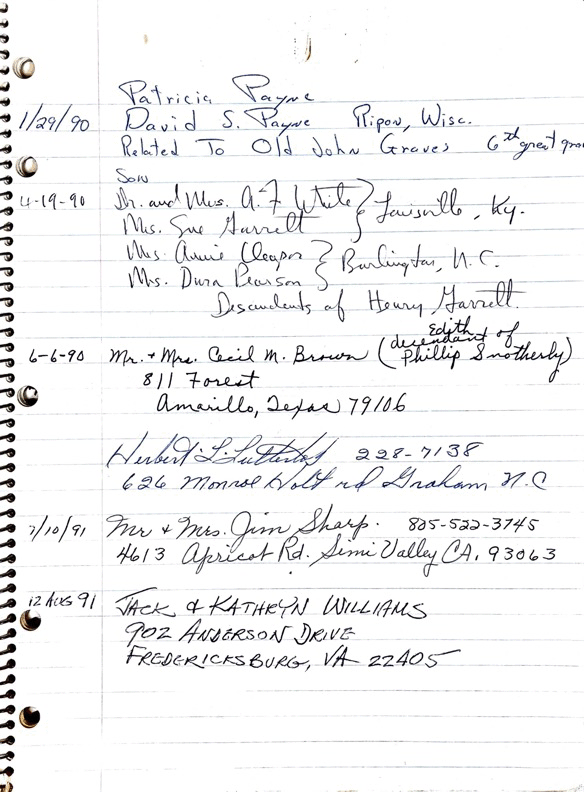 Patricia Payne
1/29/90 David S. Payne Ripon, Wisc.
Related To Old John Graves 6th great gra
Son
4-19-90 Dr. and Mrs. A. F White } Louisville, Ky.
Mrs. Sue Garrett
Mrs. Annie Clapper } Burlington, N.C.
Mrs. Dura Pearson
Descendents of Henry Garrett.
6-6-90 Mr. + Mrs. Cecil M. Brown (Edith decendant of Phillip Snotherly)
811 Forest
Amarillo, Texas 79106
Herbert L. 228-7138
626 Monroe Holt rd Graham N.C
7/10/91 Mr & Mrs. Jim Sharp. 805-522-3745
4613 Apricot Rd. Simi Valley CA. 93063
12 AUG 91 JACK & KATHRYN WILLIAMS
902 ANDERSON DRIVE
FREDERICKSBURG, VA 22405